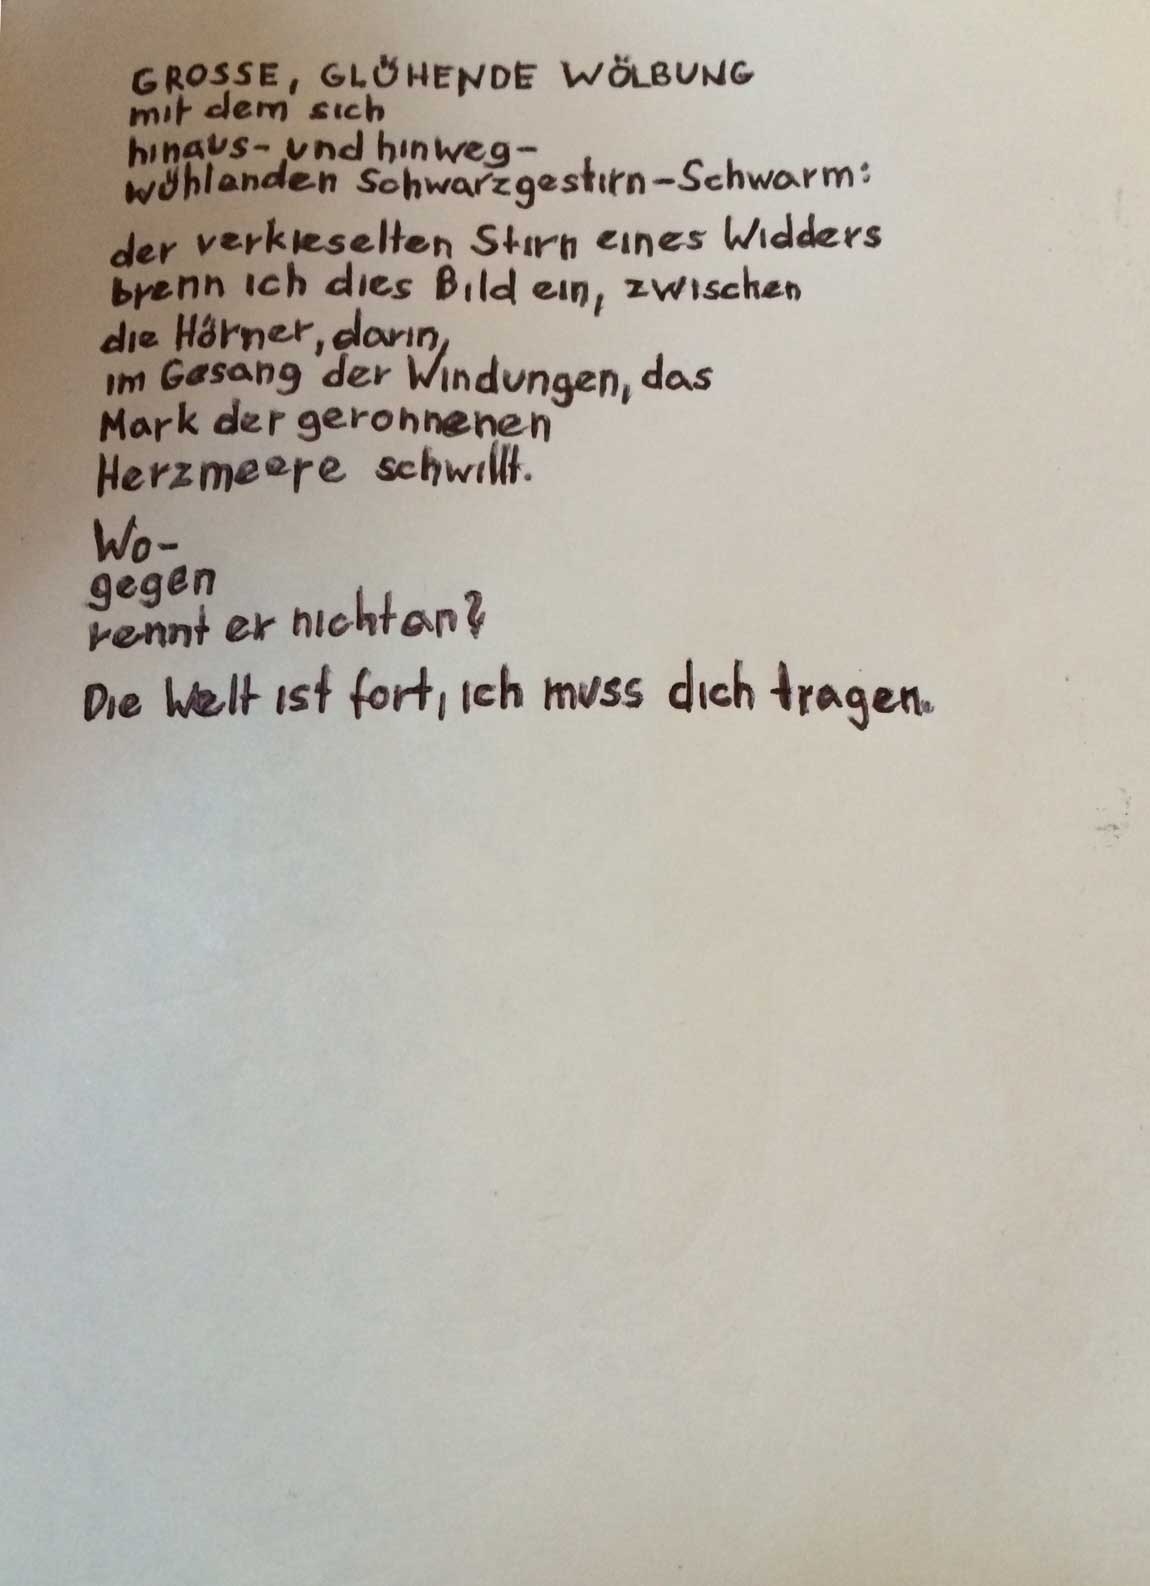 GROSSE, GLÜHENDE WÖLBUNG
mit dem sich
hinaus- und hinweg-
wühlenden Schwarzgestirn-Schwarm:
der verkieselten Stirn eines Widders
brenn ich dies Bild ein, zwischen
die Hörner, darin,
im Gesang der Windungen, das
Mark der geronnenen
Herzmeere schwillt.
Wo-
gegen
rennt er nicht an?
Die Welt ist fort, ich muss dich tragen.